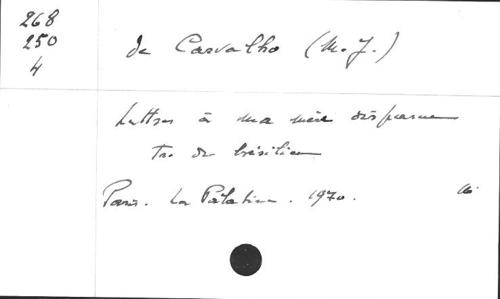 268
250
4
de Carvalho (M. J.)
Lettres à ma mère disparue
Tr. du brésilien
Paris. La Palatine. 1970.